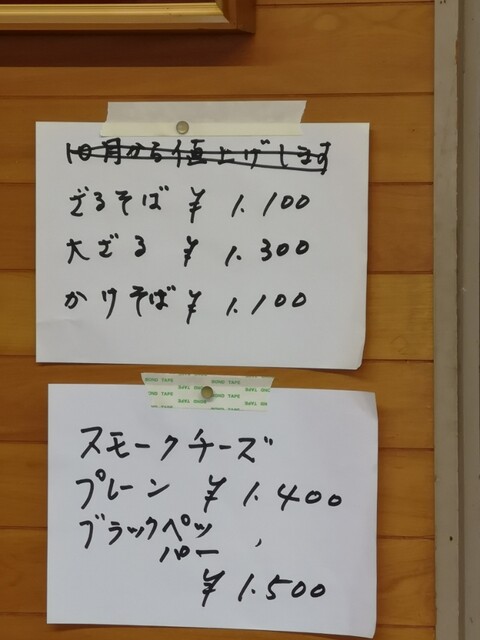 10月から値上げします
ざるそば ¥ 1.100
大ざる ¥ 1.300
かけそば ¥ 1.100
スモークチーズ
プレーン ¥ 1.400
ブラックペッ
パー
¥ 1.500